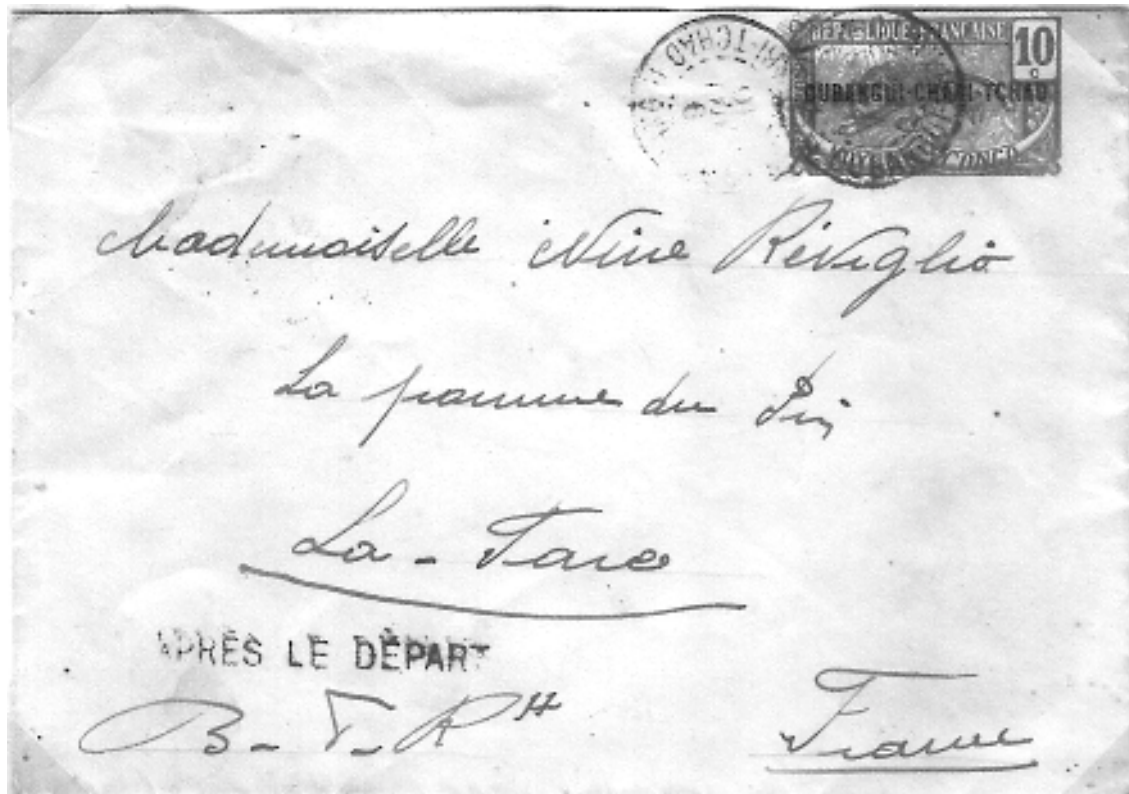 REPUBLIQUE FRANÇAISE 10 c
OUBANGUI-CHARI-TCHAD
CONGO
Mademoiselle Nine Réviglio
La pomme du Pin
La - Fare
APRÈS LE DÉPART
B - D - R H
France